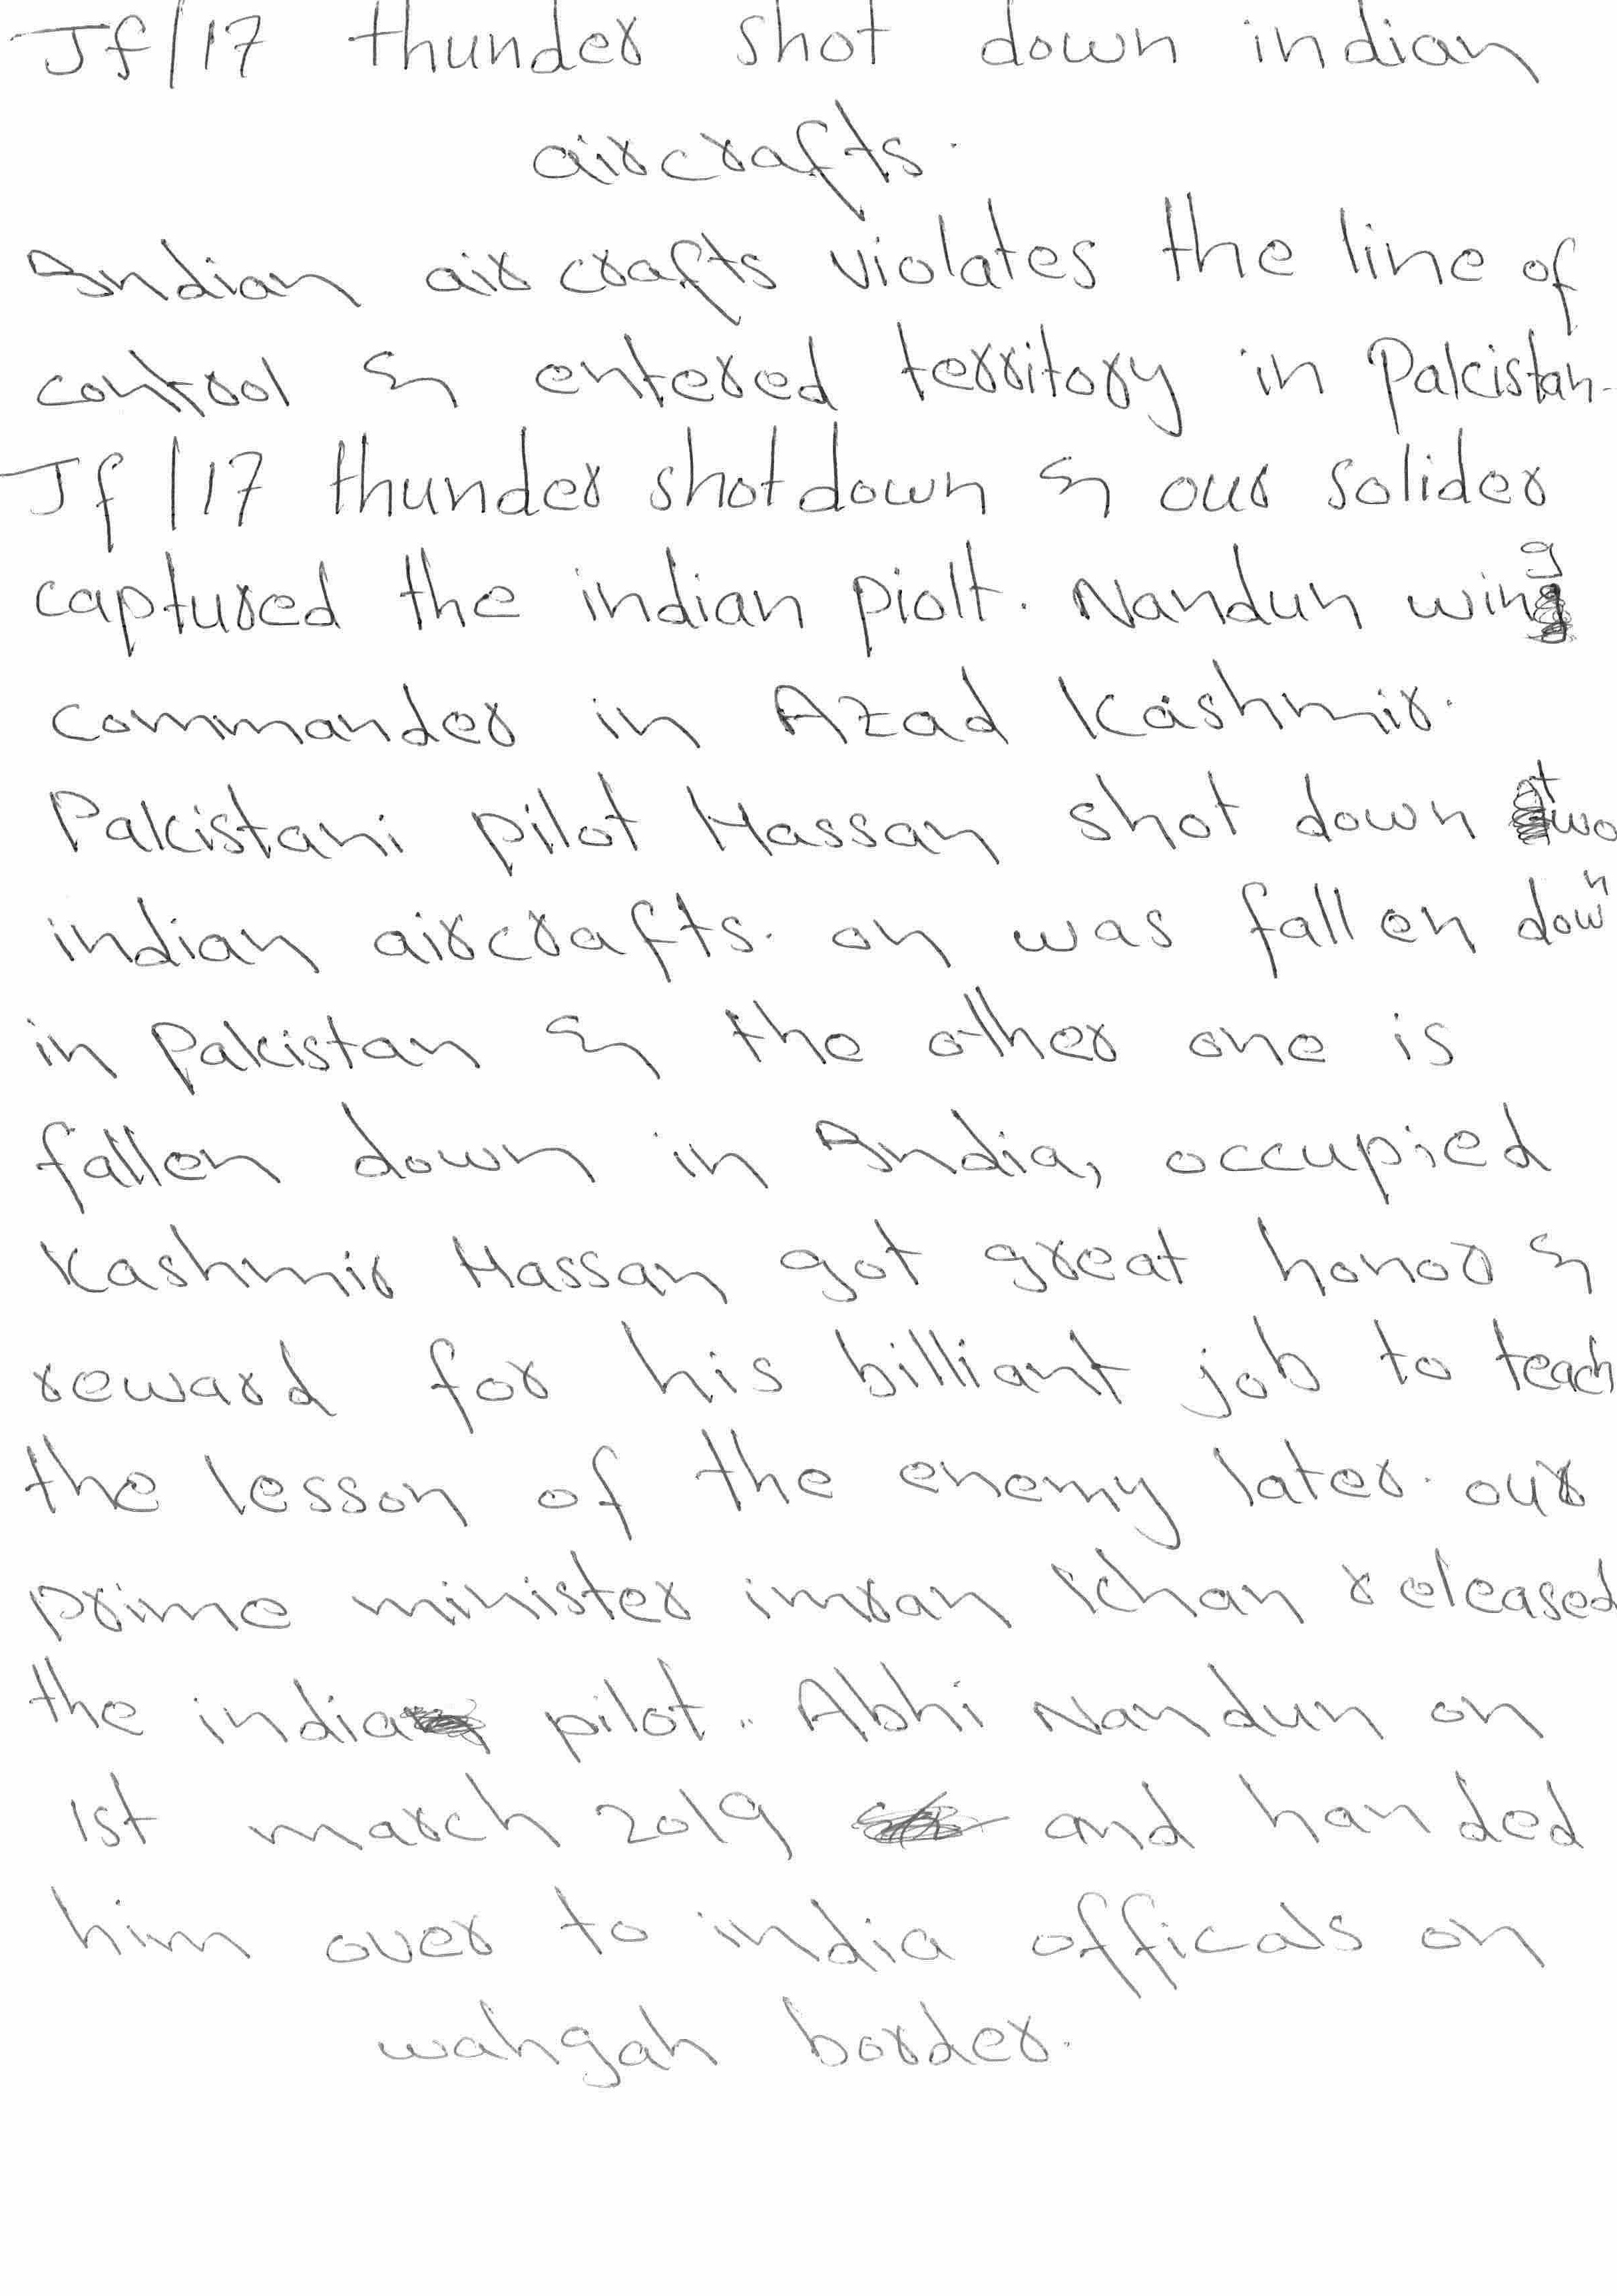 Jf/17 thunder shot down indian
aircrafts.
Indian air crafts violates the line of
control & entered territory in Pakistan.
Jf/17 thunder shot down & our solider
captured the indian piolt. Nandun wing
commander in Azad Kashmir.
Pakistani pilot Hassan shot down two
indian aircrafts. on was fallen down
in Pakistan & the other one is
fallen down in India, occupied
Kashmir Hassan got great honor &
reward for his billiant job to teach
the lesson of the enemy later. our
prime minister imran khan released
the india pilot.. Abhi Nandun on
1st march 2019 and handed
him over to india officals on
wahgah border.